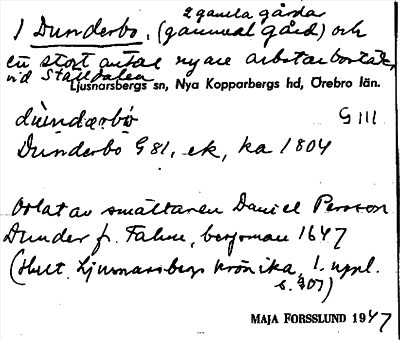 2 gamla gårdar
1 Dunderbo, (gammal gård) och
ett stort antal nyare arbetarbostäder,
vid Ställdalen
Ljusnarsbergs sn, Nya Kopparbergs hd, Örebro län.
G III
Dunderbo G 81, ek, ka 1804
av smältaren Daniel Persson
Dunder fr. Falun, bergsman 1647
(Hult. Ljusnarsbergs krönika, 1. uppl.
s. 307)
MAJA FORSSLUND 1947